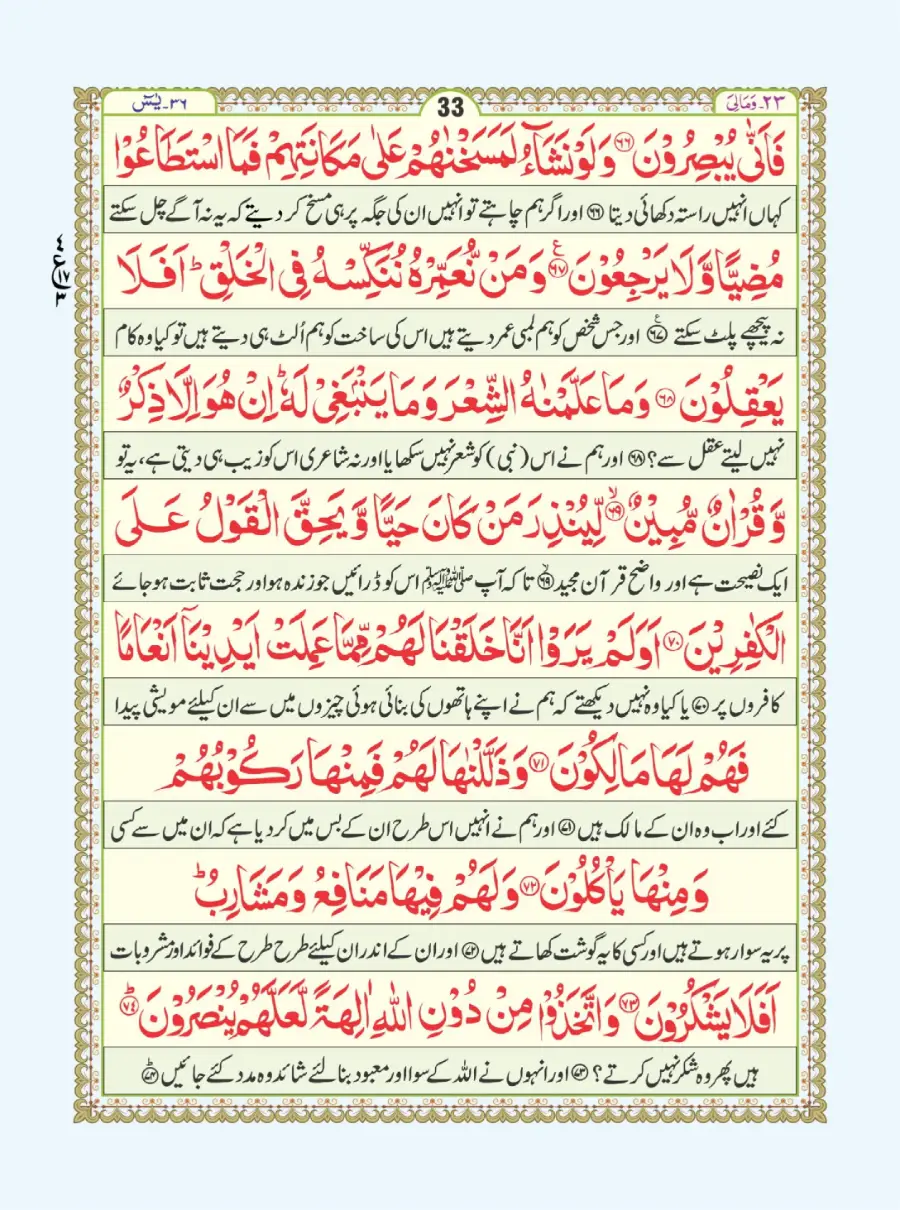 ۲۳۔ وَمَالِیَ
33
۳۶۔ یٰسٓ
فَاَنّٰى يُبْصِرُوْنَ ﴿۶۶﴾ وَلَوْ نَشَآءُ لَمَسَخْنٰهُمْ عَلٰى مَكَانَتِهِمْ فَمَا اسْتَطَاعُوْا
کہاں انہیں راستہ دکھائی دیتا ﴿۶۶﴾ اور اگر ہم چاہتے تو انہیں ان کی جگہ پر ہی مسخ کر دیتے کہ یہ نہ آگے چل سکتے
مُضِيًّا وَّلَا يَرْجِعُوْنَ ﴿۶۷﴾ؑ وَمَنْ نُّعَمِّرْهُ نُنَكِّسْهُ فِى الْخَلْقِ ؕ اَفَلَا
نہ پیچھے پلٹ سکتے ﴿۶۷﴾ؑ اور جس شخص کو ہم لمبی عمر دیتے ہیں اس کی ساخت کو ہم اُلٹ ہی دیتے ہیں تو کیا وہ کام
يَعْقِلُوْنَ ﴿۶۸﴾ وَمَا عَلَّمْنٰهُ الشِّعْرَ وَمَا يَنْۢبَغِىْ لَهٗ ؕ اِنْ هُوَ اِلَّا ذِكْرٌ
نہیں لیتے عقل سے؟ ﴿۶۸﴾ اور ہم نے اس (نبی) کو شعر نہیں سکھایا اور نہ شاعری اس کو زیب ہی دیتی ہے، یہ تو
وَّقُرْاٰنٌ مُّبِيْنٌ ﴿۶۹﴾ۙ لِّيُنْذِرَ مَنْ كَانَ حَيًّا وَّيَحِقَّ الْقَوْلُ عَلَى
ایک نصیحت ہے اور واضح قرآن مجید ﴿۶۹﴾ۙ تاکہ آپ ﷺ اس کو ڈرائیں جو زندہ ہو اور حجت ثابت ہو جائے
الْكٰفِرِيْنَ ﴿۷۰﴾ اَوَلَمْ يَرَوْا اَنَّا خَلَقْنَا لَهُمْ مِّمَّا عَمِلَتْ اَيْدِيْنَاۤ اَنْعَامًا
کافروں پر ﴿۷۰﴾ یا کیا وہ نہیں دیکھتے کہ ہم نے اپنے ہاتھوں کی بنائی ہوئی چیزوں میں سے ان کیلئے مویشی پیدا
فَهُمْ لَهَا مَالِكُوْنَ ﴿۷۱﴾ وَذَلَّلْنٰهَا لَهُمْ فَمِنْهَا رَكُوْبُهُمْ
کئے اور اب وہ ان کے مالک ہیں ﴿۷۱﴾ اور ہم نے انہیں اس طرح ان کے بس میں کر دیا ہے کہ ان میں سے کسی
وَمِنْهَا يَاْكُلُوْنَ ﴿۷۲﴾ وَلَهُمْ فِيْهَا مَنَافِعُ وَمَشَارِبُ ؕ
پر یہ سوار ہوتے ہیں اور کسی کا یہ گوشت کھاتے ہیں ﴿۷۲﴾ اور ان کے اندر ان کیلئے طرح طرح کے فوائد اور مشروبات
اَفَلَا يَشْكُرُوْنَ ﴿۷۳﴾ وَاتَّخَذُوْا مِنْ دُوْنِ اللّٰهِ اٰلِهَةً لَّعَلَّهُمْ يُنْصَرُوْنَ ﴿۷۴﴾ؕ
ہیں پھر وہ شکر نہیں کرتے؟ ﴿۷۳﴾ اور انہوں نے اللہ کے سوا اور معبود بنا لئے شائد وہ مدد کئے جائیں ﴿۷۴﴾ؕ